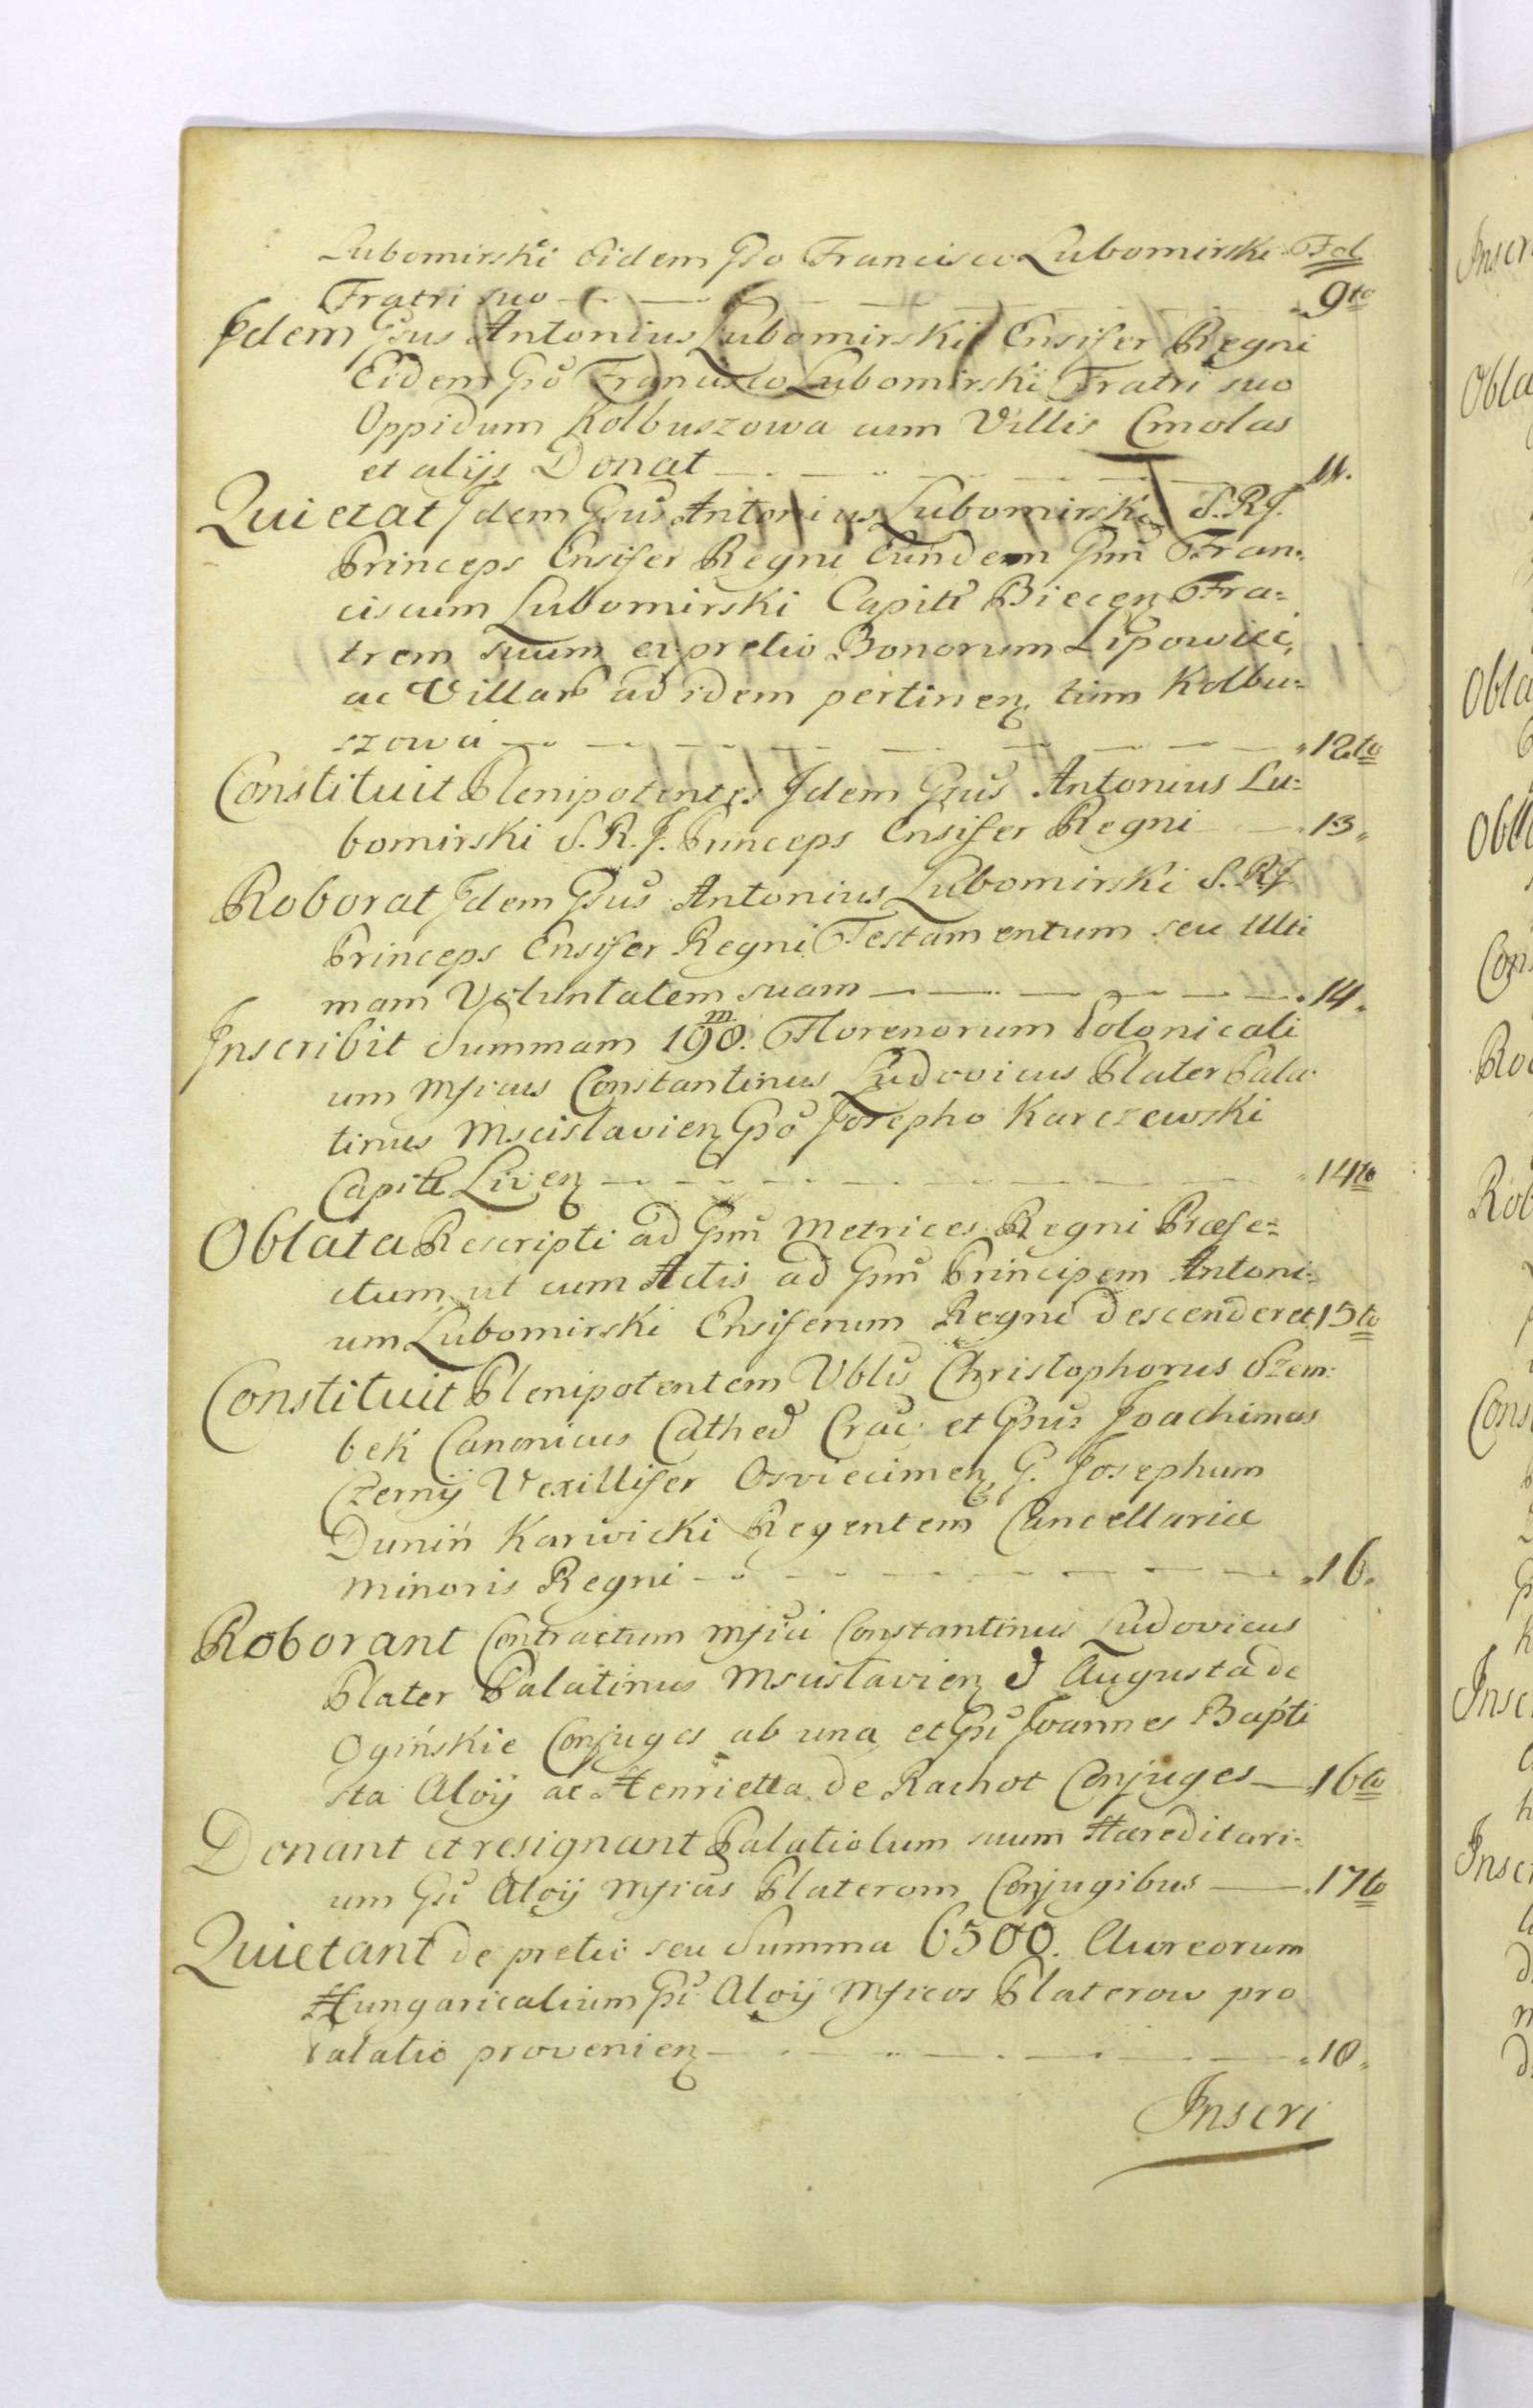 Lubomirski Eidem Gso Francisco Lubomirski Fol
Fratri suo 9to
Idem Gsus Antonius Lubomirski Ensifer Regni
Eidem Gso Francisco Lubomirski Fratri suo
Oppidum Kolbuszowa cum Villis Cmolas
et alijs Donat 11.
Quietat Idem Gsus Antonius Lubomirski S.R.J.
Princeps Ensifer Regni Eundem Gsm Fran=
ciscum Lubomirski Capit Biecen Fra=
trem suum ex pretio Bonorum Lipowiec,
ac Villar ad idem pertinen, tum Kolbu=
szowa 12to
Constituit Plenipotentes Idem Gsus Antonius Lu=
bomirski S.R.J. Princeps Ensifer Regni 13
Roborat Idem Gsus Antonius Lubomirski S.R.J.
Princeps Ensifer Regni Testamentum seu Ulti
mam Voluntatem suam 14
Inscribit Summam 198.m Florenorum Polonicali
um Mficus Constantinus Ludovicus Plater Pala
tinus Mscislavien Gso Josepho Karczewski
Capit Liven 14to
Oblata Rescripti ad Gsm Metrices Regni Præfe=
ctum ut cum Actis ad Gsm Principem Antoni=
um Lubomirski Ensiferum Regni descenderet 15to
Constituit Plenipotentem Vblis Christophorus Szem=
bek Canonicus Cathed Crac: et Gsus Joachimus
Czernij Vexillifer Osviecimen G. Josephum
Dunin Karwicki Regentem Cancellariæ
Minoris Regni 16
Roborant Contractum Mfici Constantinus Ludovicus
Plater Palatinus Mscislavien & Augusta de
Ogińskie Conjuges ab una et Gsi Joannes Bapti
sta Aloij ac Henrietta de Rachot Conjuges 16to
Donant et resignant Palatiolum suum Hæreditari=
um Gsi Aloij Mficis Platerom Conjugibus 17to
Quietant de pretio seu Summa 6500. Aureorum
Hungaricalium Gsi Aloij Mficos Platerow pro
Palatio provenien 18
Inscri